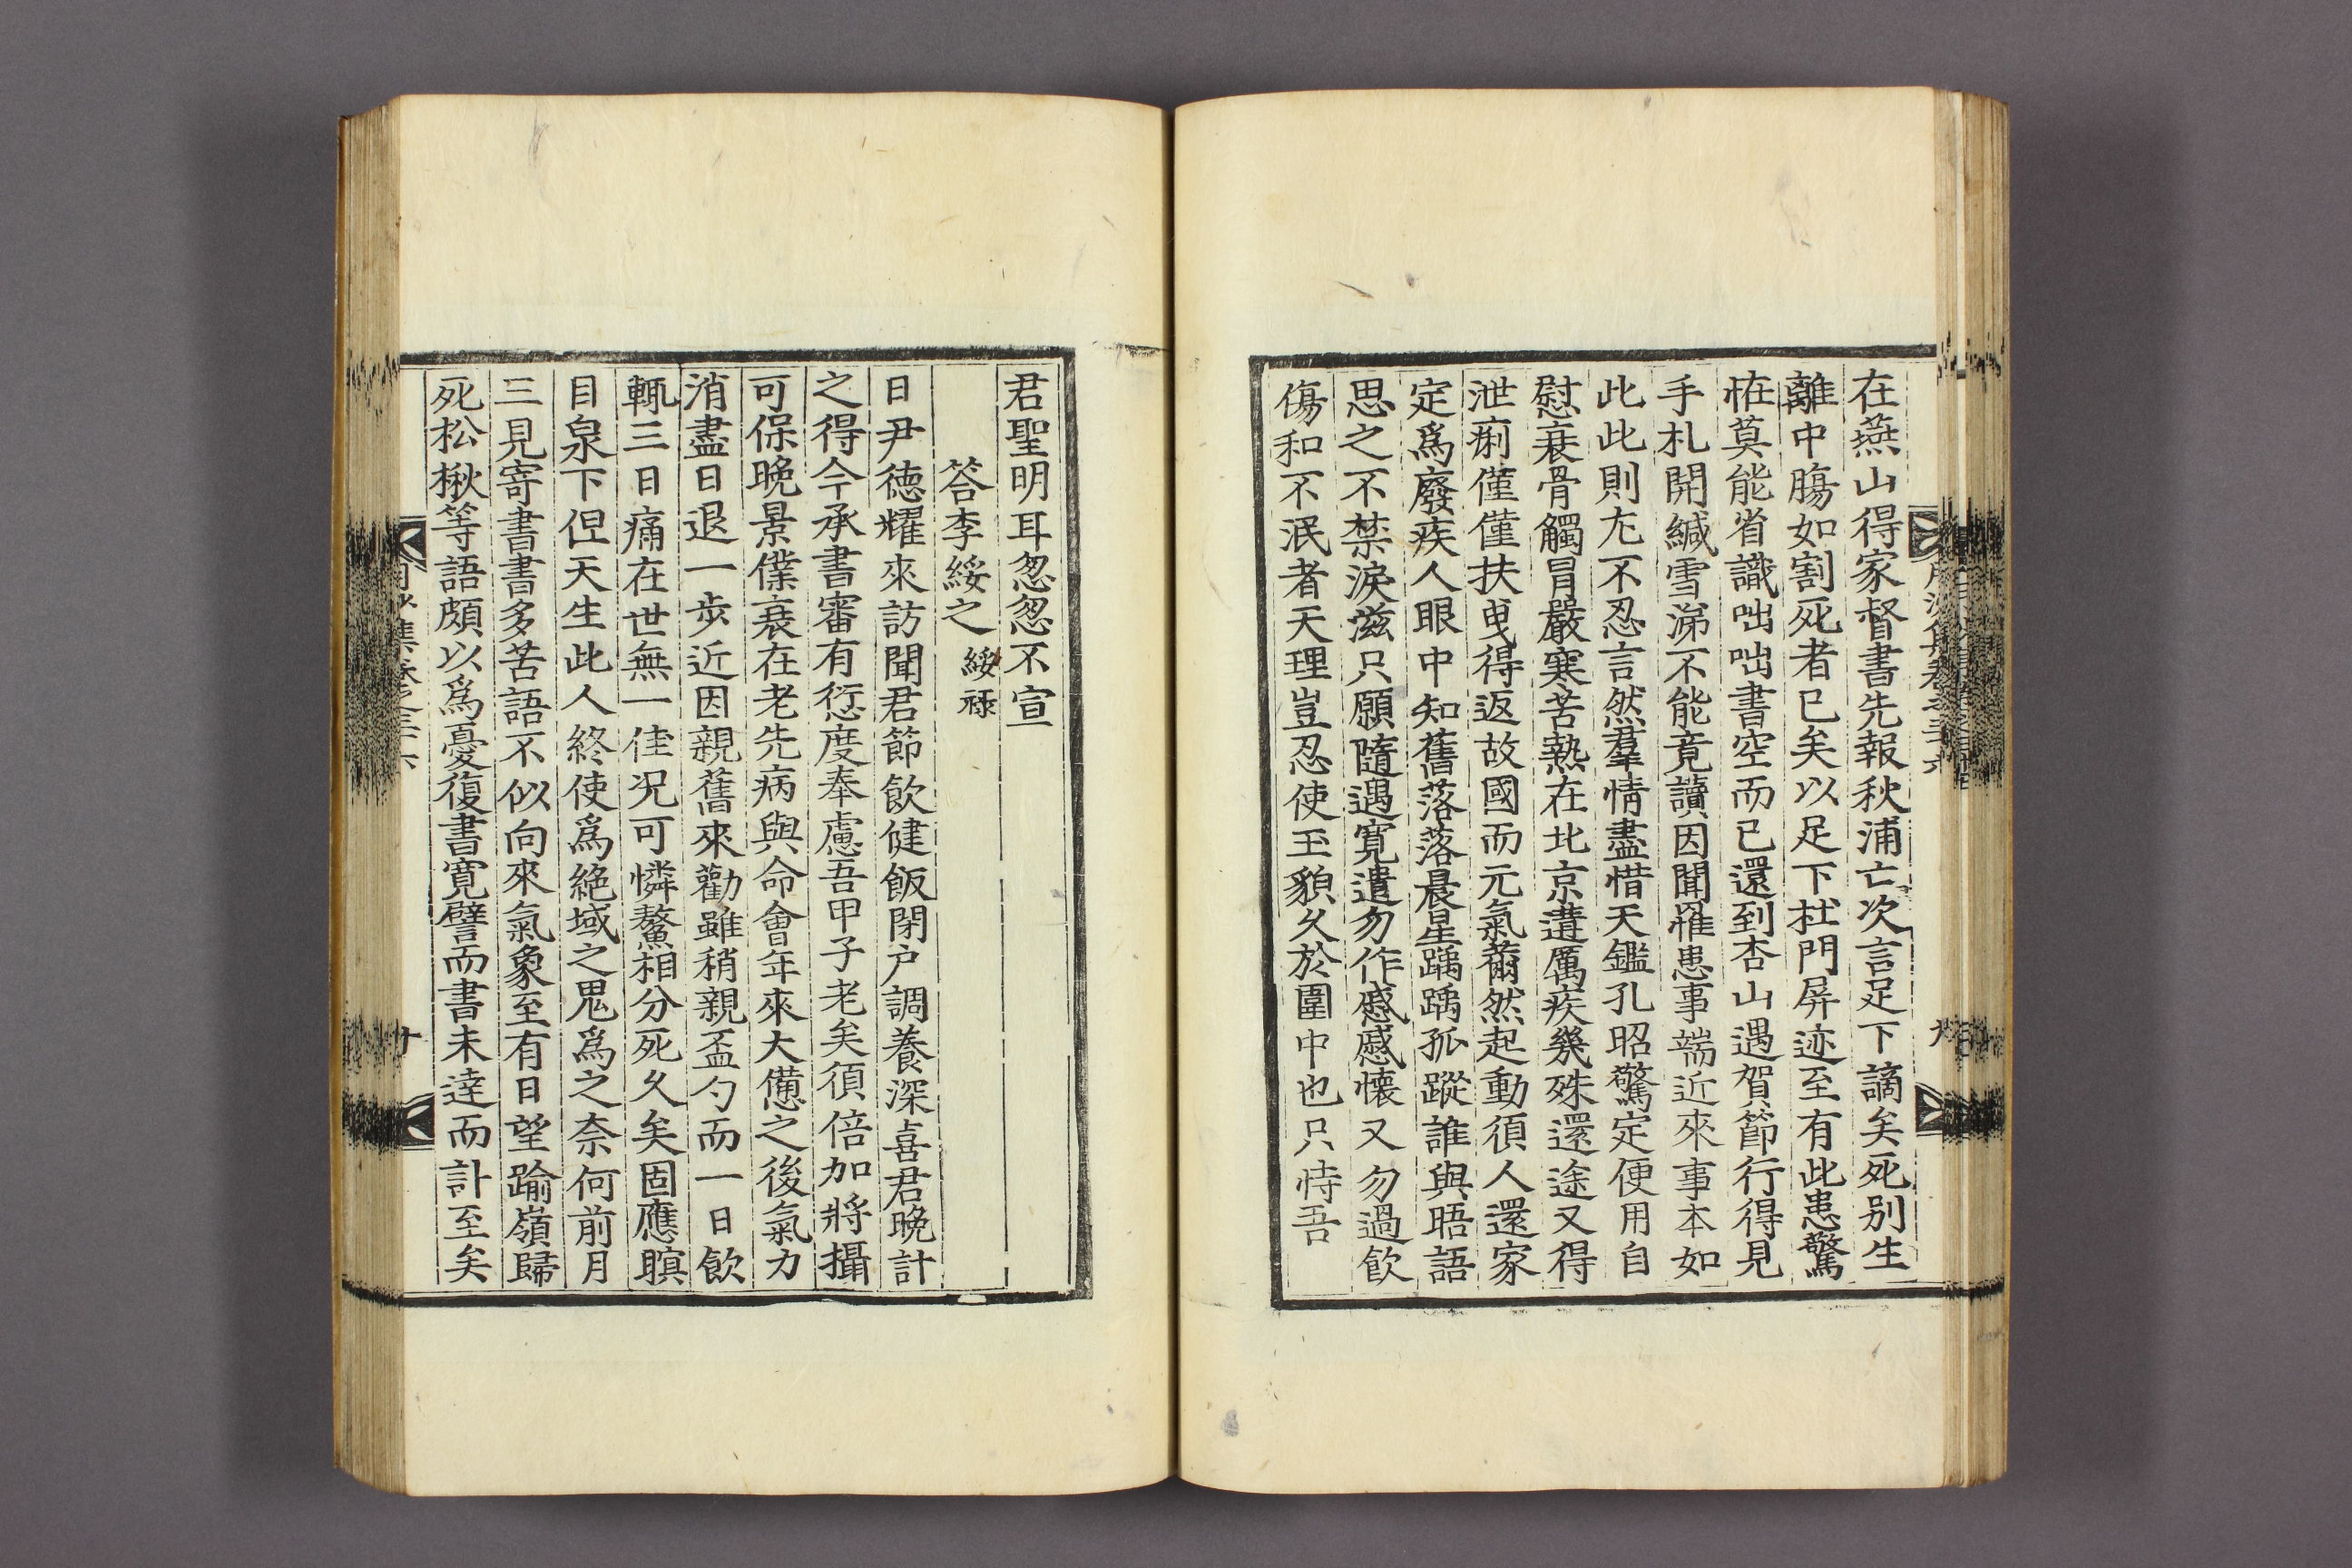 在燕山得家督書先報秋浦亡次言足下謫矣死別生
離中膓如割死者已矣以足下杜門屏迹至有此患驚
恠莫能省識咄咄書空而已還到杏山遇賀節行得見
手札開緘雪涕不能竟讀因聞罹患事端近來事本如
此此則尤不忍言然羣情盡惜天鑑孔昭驚定便用自
慰衰骨觸冒嚴寒苦熱在北京遘厲疾幾殊還途又得
泄痢僅僅扶曳得返故國而元氣薾然起動須人還家
定爲廢疾人眼中知舊落落晨星踽踽孤蹤誰與晤語
思之不禁淚滋只願隨遇寬遣勿作慼慼懷又勿過飮
傷和不泯者天理豈忍使玉貌久於圍中也只恃吾
君聖明耳忽忽不宣
答李綏之 綏祿
日尹德耀來訪聞君節飮健飯閉户調養深喜君晩計
之得今承書審有愆度奉慮吾甲子老矣須倍加將攝
可保晩景僕衰在老先病與命會年來大憊之後氣力
消盡日退一步近因親舊來勸雖稍親盃勺而一日飮
輒三日痛在世無一佳况可憐鰲相分死久矣固應瞑
目泉下但天生此人終使爲絶域之鬼爲之奈何前月
三見寄書書多苦語不似向來氣象至有日望踰嶺歸
死松楸等語頗以爲憂復書寬譬而書未達而訃至矣
十